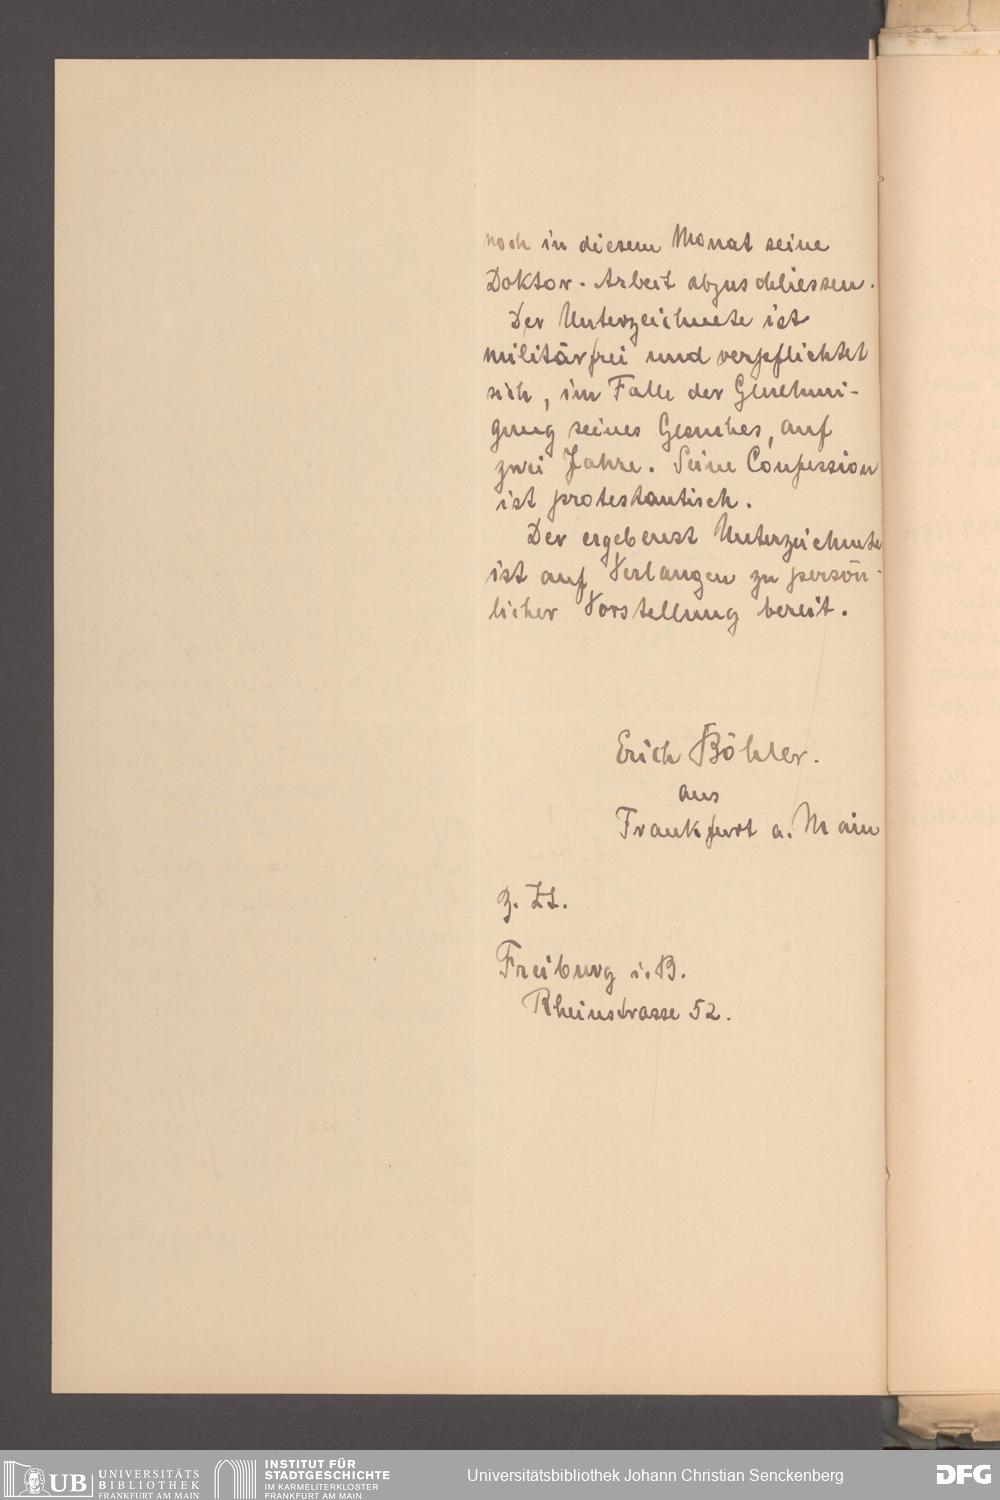 noch in diesem Monat seine
Doktor-Arbeit abzuschliessen.
Der Unterzeichnete ist
militärfrei und verpflichtet
sich, im Falle der Genehmi-
gung seines Gesuches, auf
zwei Jahre. Seine Confession
ist protestantisch.
Der ergebenst Unterzeichnete
ist auf Verlangen zu persön-
licher Vorstellung bereit.
Erich Böhler.
aus
Frankfurt a. Main
z. Zt.
Freiburg i. B.
Rheinstrasse 52.
UB UNIVERSITÄTS
BIBLIOTHEK
FRANKFURT AM MAIN
INSTITUT FÜR
STADTGESCHICHTE
IM KARMELITERKLOSTER
FRANKFURT AM MAIN
Universitätsbibliothek Johann Christian Senckenberg
DFG